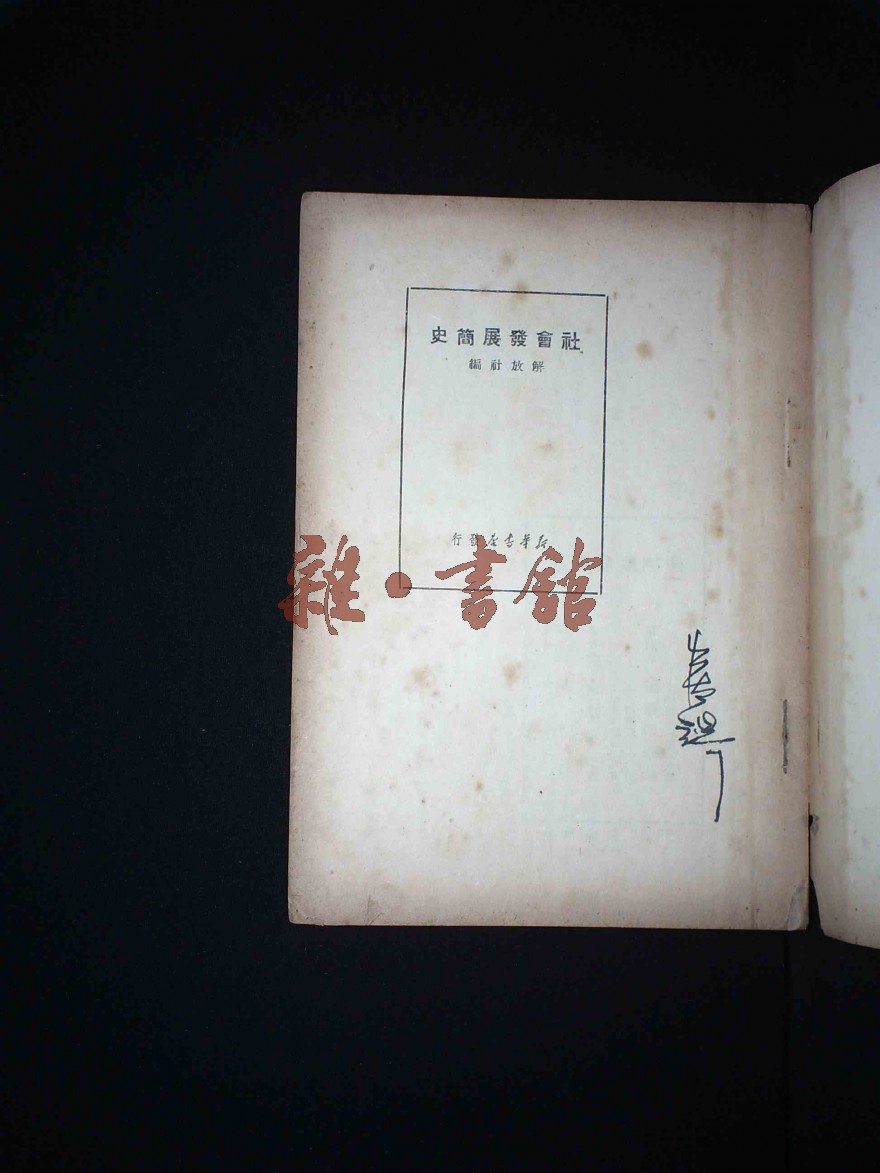 社會發展簡史
解放社編
新華書店發行
雜·書館